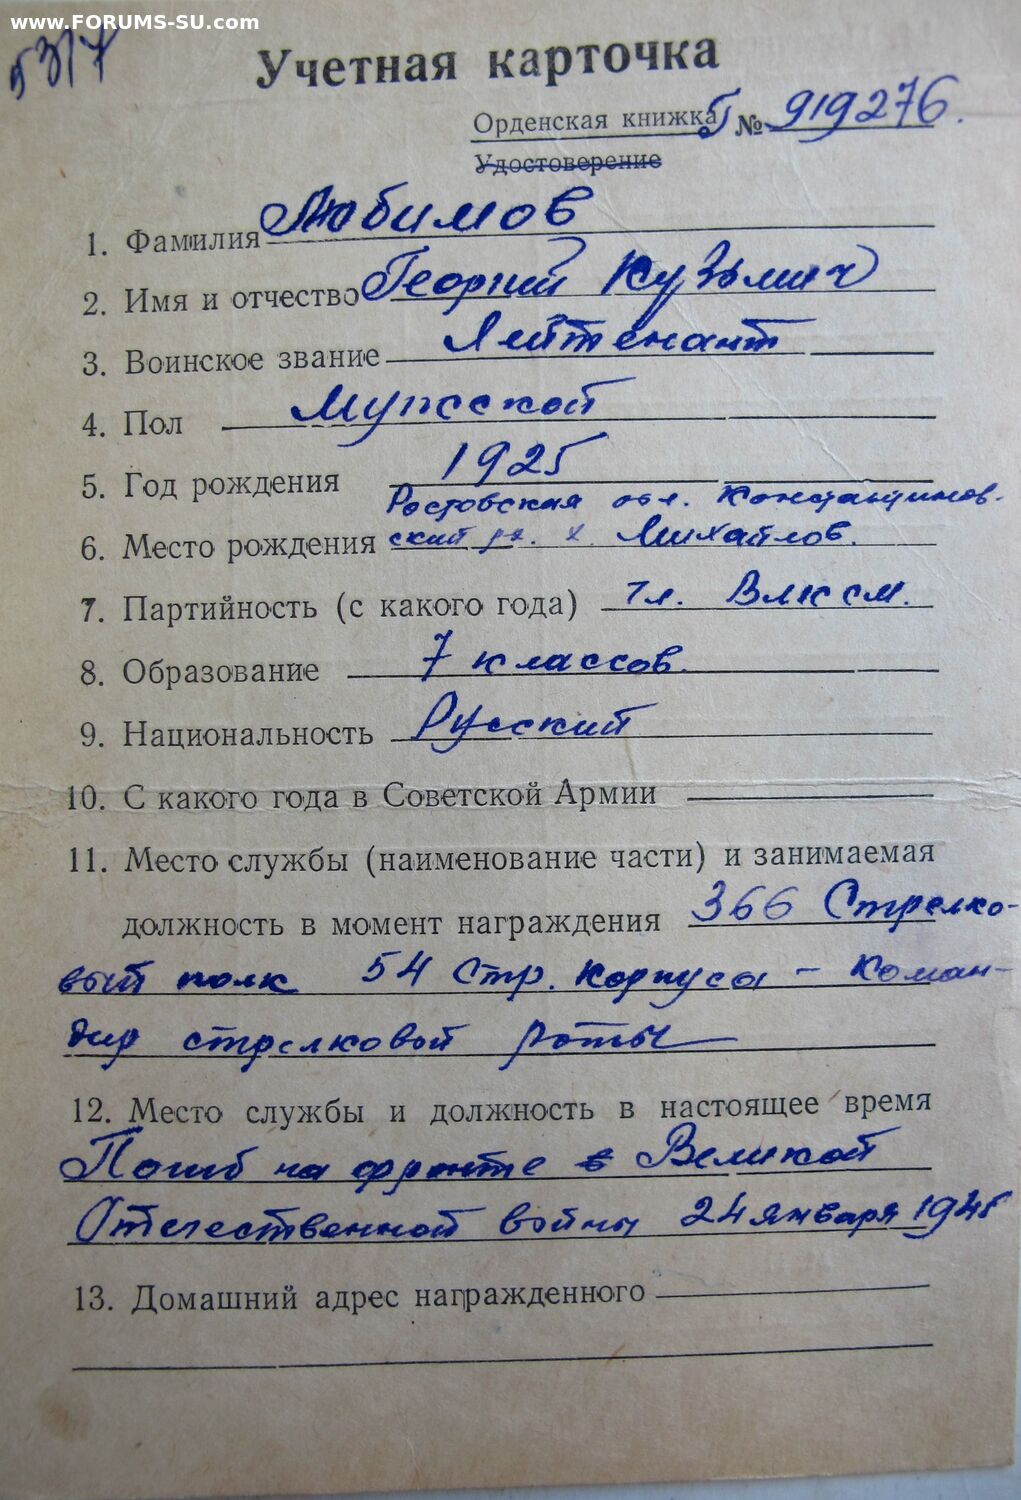 www.FORUMS-SU.com
5317
Учетная карточка
Орденская книжка Г № 919276.
Удостоверение
1. Фамилия Любимов
2. Имя и отчество Георгий Кузьмич
3. Воинское звание Лейтенант
4. Пол Мужской
5. Год рождения 1925
Ростовская обл. Константинов-
6. Место рождения ский р-н. х. Михайлов.
7. Партийность (с какого года) чл. ВЛКСМ.
8. Образование 7 классов.
9. Национальность Русский
10. С какого года в Советской Армии
11. Место службы (наименование части) и занимаемая
должность в момент награждения 366 Стрелко-
вый полк 54 Стр. корпуса – коман-
дир стрелковой роты
12. Место службы и должность в настоящее время
Погиб на фронте в Великой
Отечественной войны 24 января 1945
13. Домашний адрес награжденного